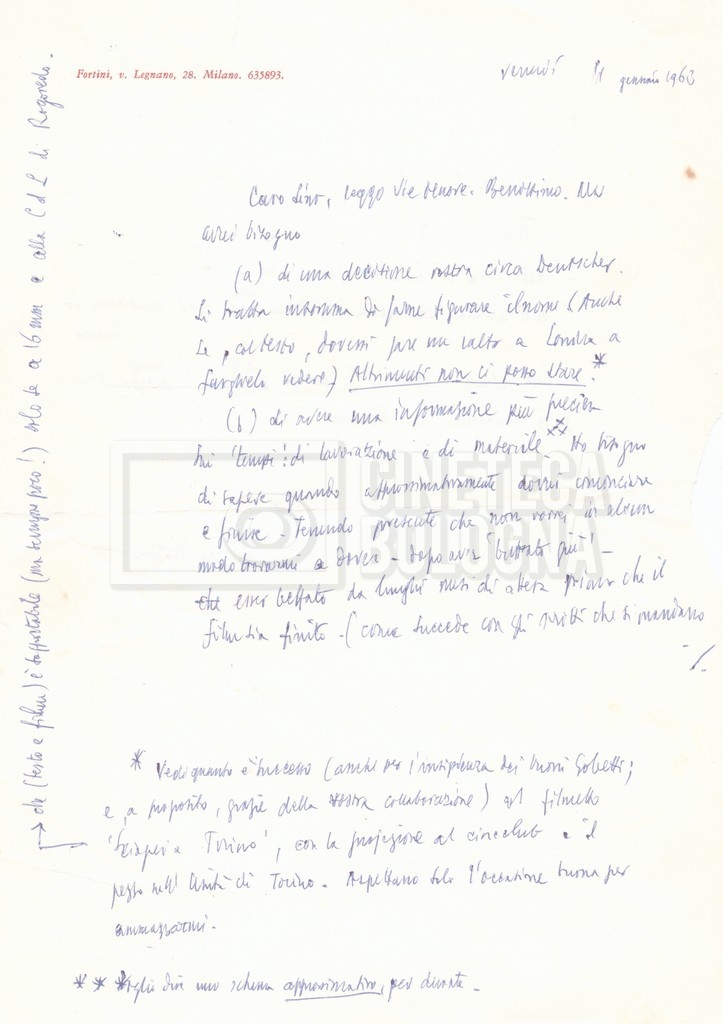 Fortini, v. Legnano, 28. Milano. 635893.
venerdì 11 gennaio 1963
Caro Lino, leggo Vie Nuove. Benissimo. Ma
avrei bisogno
(a) di una decisione vostra circa Deutscher.
Si tratta insomma di farne figurare il nome (Anche
se, col testo, dovessi fare un salto a Londra a
farglielo vedere) Altrimenti non ci posso stare.*
(b) di avere una informazione più precisa
sui 'tempi' di lavorazione e di materiale ** Ho bisogno
di sapere quando approssimativamente dovrei cominciare
e finire - tenendo presente che non vorrei in alcun
modo trovarmi a dover - dopo aver 'buttato giù' -
esser beffato da lunghi mesi di attesa prima che il
film sia finito - (come succede con gli scritti che si mandano
./.
* Vedi quanto è successo (anche per l'insipienza dei buoni Gobetti;
e, a proposito, grazie della vostra collaborazione) col filmetto
'Scioperi a Torino', con la proiezione al cineclub e il
pezzo nell'Unità di Torino. Aspettano solo l'occasione buona per
ammazzarmi.
** Voglio dire uno schema approssimativo, per durate -
→ che (testo e film) è sopportabile (ma sempre poco!) solo se a 16 mm e alla CdL di Rogoredo.
CINETECA
BOLOGNA